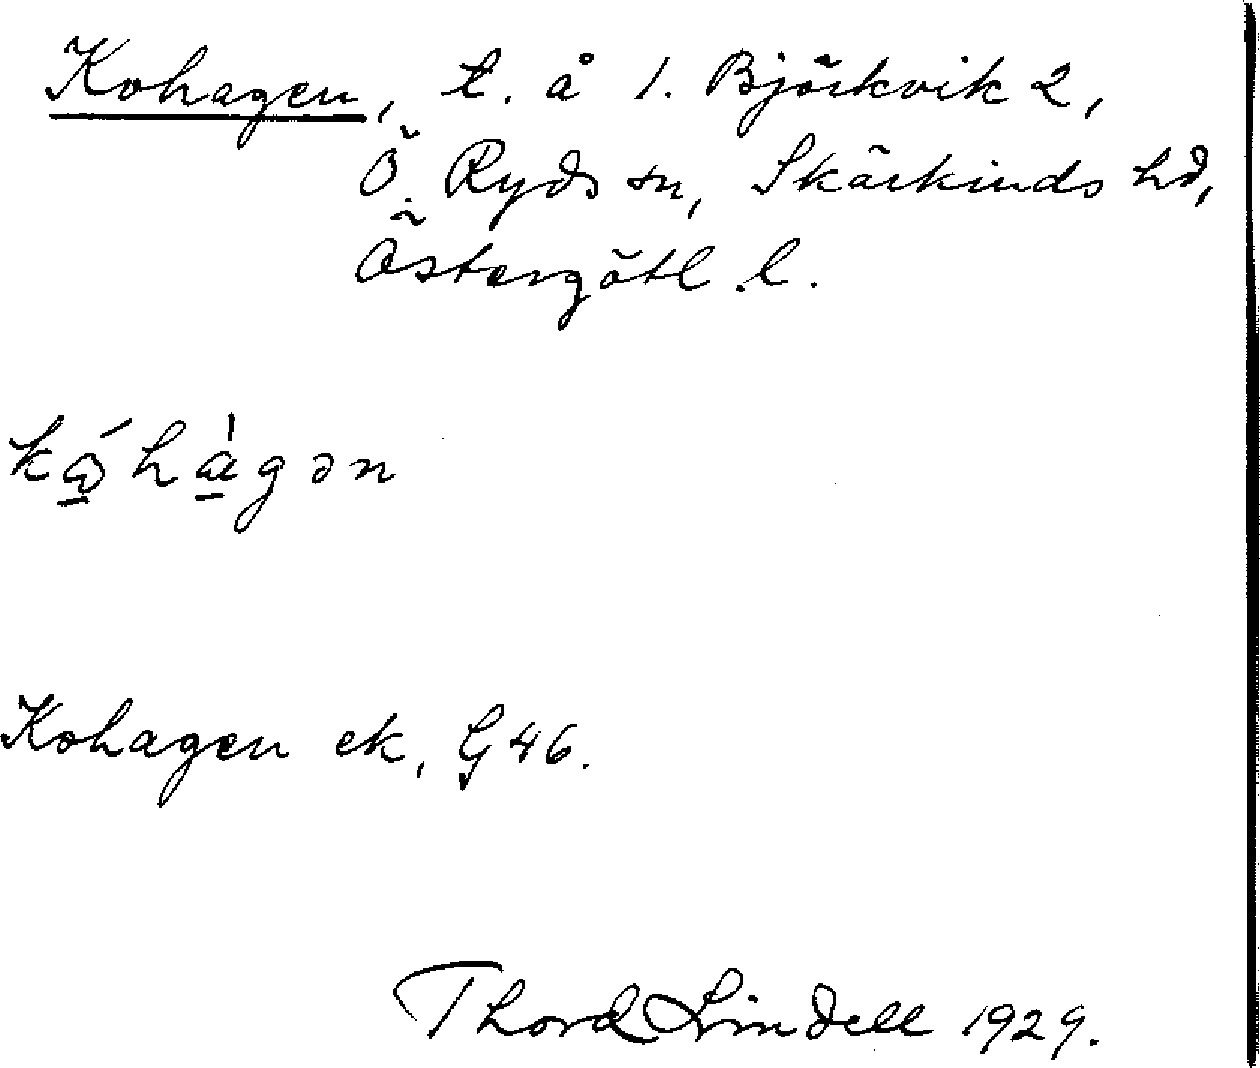 Kohagen, t. å l. Björkvik 2,
Ö. Ryds sn, Skärkinds hd,
Östergötl. l.
kώ̲hɑ̲̀gən
Kohagen ek, G 46.
Thord Lindell 1929.